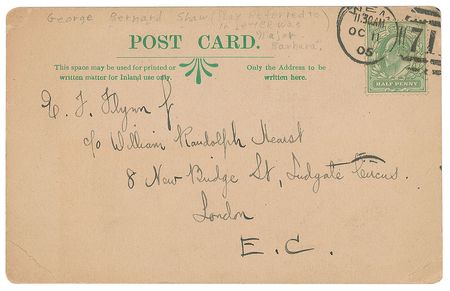 George Bernard Shaw (Play referred to)
in letter was
Major
Barbara.
POST CARD.
This space may be used for printed or
written matter for Inland use only.
Only the Address to be
written here.
11.30AM
OC 11
05
71
HALF PENNY
E. J. Flynn
c/o William Randolph Hearst
8 New Bridge St, Ludgate Circus.
London
E. C.